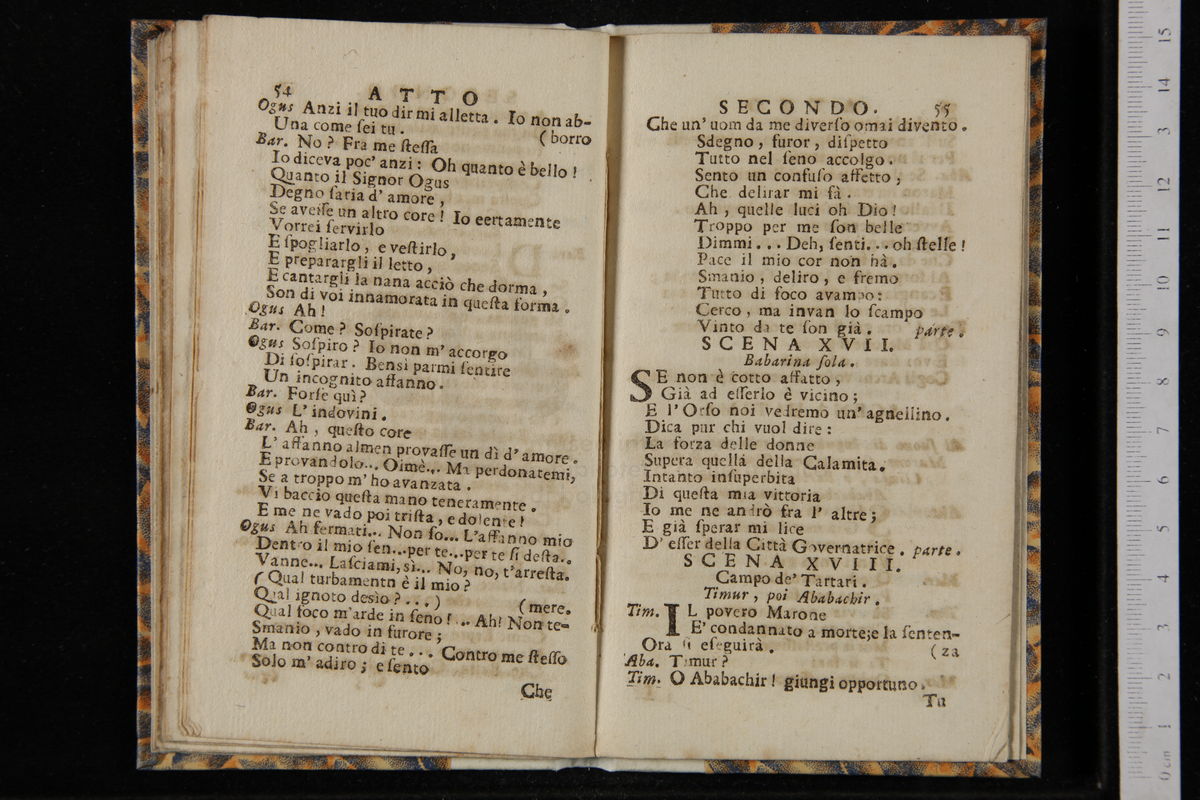 54 ATTO
Ogus Anzi il tuo dir mi alletta. Io non ab-
Una come ſei tu. (borro
Bar. No? Fra me ſteſſa
Io diceva poc' anzi: Oh quanto è bello!
Quanto il Signor Ogus
Degno ſaria d' amore,
Se aveſſe un altro core! Io eertamente
Vorrei ſervirlo
E ſpogliarlo, e veſtirlo,
E preparargli il letto,
E cantargli la nana acciò che dorma,
Son di voi innamorata in queſta forma.
Ogus Ah!
Bar. Come? Soſpirate?
Ogus Soſpiro? Io non m' accorgo
Di ſoſpirar. Bensì parmi ſentire
Un incognito affanno.
Bar. Forſe quì?
Ogus L' indovini.
Bar. Ah, queſto core
L' affanno almen provaſſe un dì d' amore.
E provandolo... Oimè... Ma perdonatemi,
Se a troppo m' ho avanzata.
Vi baccio queſta mano teneramente.
E me ne vado poi triſta, e dolente!
Ogus Ah fermati... Non ſo... L'affanno mio
Dentro il mio ſen...per te...per te ſi deſta..
Vanne... Laſciami, sì... No, no, t'arreſta.
(Qual turbamentn è il mio?
Qual ignoto desìo?...) (mere.
Qual foco m'arde in ſeno!... Ah! Non te-
Smanio, vado in furore;
Ma non contro di te... Contro me ſteſſo
Solo m' adiro; e ſento
Che
SECONDO. 55
Che un' uom da me diverſo omai divento.
Sdegno, furor, diſpetto
Tutto nel ſeno accolgo.
Sento un confuſo affetto,
Che delirar mi fà.
Ah, quelle luci oh Dio!
Troppo per me ſon belle
Dimmi... Deh, ſenti... oh ſtelle!
Pace il mio cor non hà.
Smanio, deliro, e fremo
Tutto di foco avampo:
Cerco, ma invan lo ſcampo
Vinto da te ſon già. parte.
SCENA XVII.
Babarina ſola.
SE non è cotto affatto,
Già ad eſſerlo è vicino;
E l' Orſo noi vedremo un' agnellino.
Dica pur chi vuol dire:
La forza delle donne
Supera quella della Calamita.
Intanto inſuperbita
Di queſta mia vittoria
Io me ne andrò fra l' altre;
E già ſperar mi lice
D' eſſer della Città Governatrice. parte.
SCENA XVIII.
Campo de' Tartari.
Timur, poi Ababachir.
Tim. IL povero Marone
E' condannato a morte;e la ſenten-
Ora ſi eſeguirà. (za
Aba. Timur?
Tim. O Ababachir! giungi opportuno.
Tu
0 cm 1 2 3 4 5 6 7 8 9 10 11 12 13 14 15